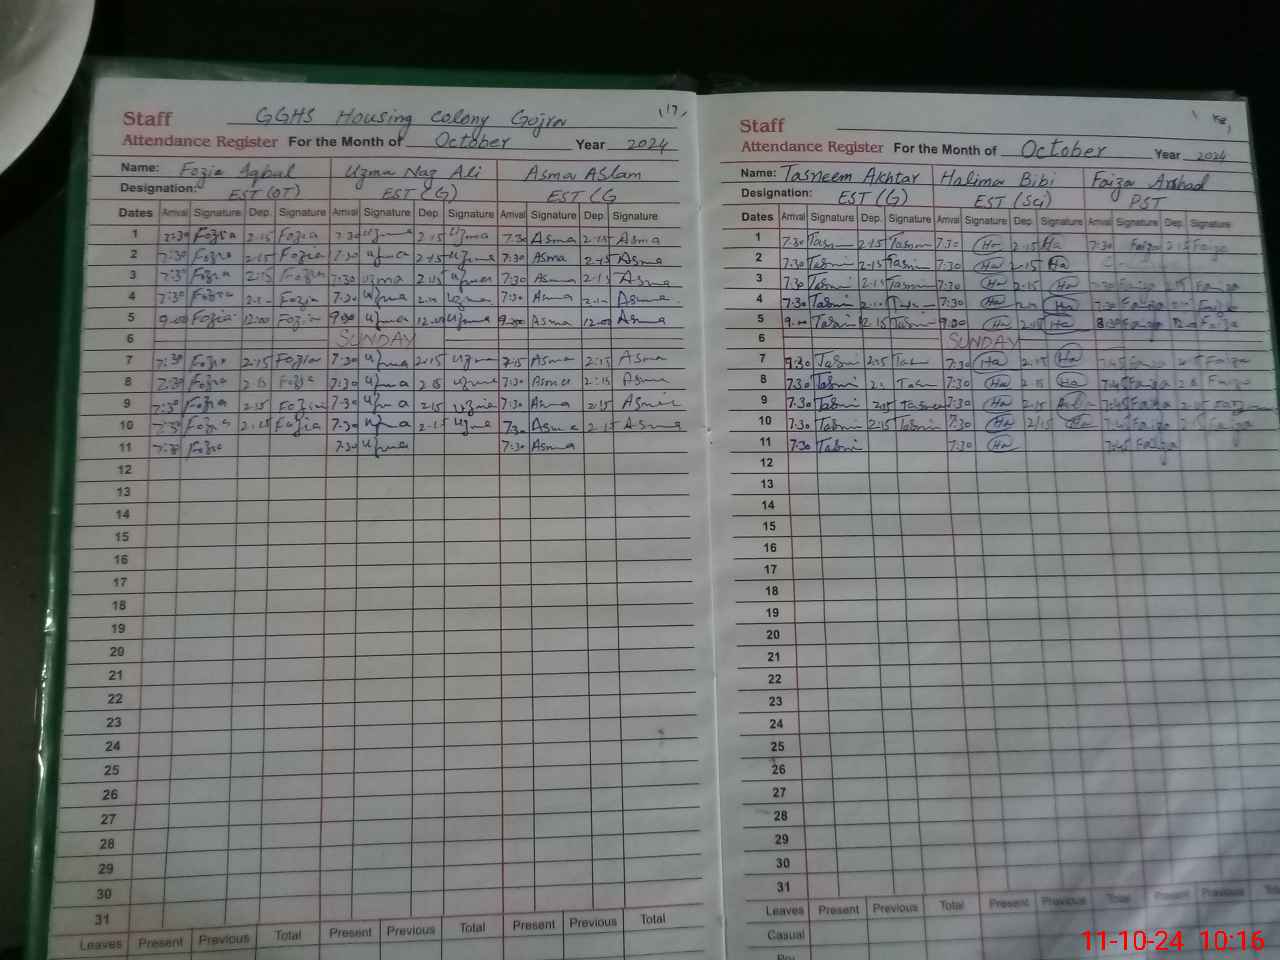 Staff GGHS Housing Colony Gojra
Attendance Register For the Month of October Year 2024
Name: Fozia Iqbal Uzma Naz Ali Asma Aslam
Designation: EST (OT) EST (G) EST (G
Dates Arrival Signature Dep. Signature Arrival Signature Dep. Signature Arrival Signature Dep. Signature
1 7:30 Fozia 2:15 Fozia 7:30 Uzma 2:15 Uzma 7:30 Asma 2:15 Asma
2 7:30 Fozia 2:15 Fozia 7:30 Uzma 2:15 Uzma 7:30 Asma 2:15 Asma
3 7:30 Fozia 2:15 Fozia 7:30 Uzma 2:15 Uzma 7:30 Asma 2:15 Asma
4 7:30 Fozia Fozia 7:30 Uzma Uzma 7:30 Asma Asma
5 9:00 Fozia 12:00 Fozia 9:00 Uzma 12:00 Uzma 9:00 Asma 12:00 Asma
6 SUNDAY
7 7:30 Fozia 2:15 Fozia 7:30 Uzma 2:15 Uzma Asma 2:15 Asma
8 7:30 Fozia 2:15 Fozia 7:30 Uzma 2:15 Uzma 7:30 Asma 2:15 Asma
9 7:30 Fozia 2:15 Fozia 7:30 Uzma 2:15 Uzma 7:30 Asma 2:15 Asma
10 7:30 Fozia 2:15 Fozia 7:30 Uzma 2:15 Uzma 7:30 Asma 2:15 Asma
11 7:30 Fozia 7:30 Uzma 7:30 Asma
12
13
14
15
16
17
18
19
20
21
22
23
24
25
26
27
28
29
30
31
Leaves Present Previous Total Present Previous Total Present Previous Total
Staff
Attendance Register For the Month of October Year 2024
Name: Tasneem Akhtar Halima Bibi Faiza Arshad
Designation: EST (G) EST (Sci) PST
Dates Arrival Signature Dep. Signature Arrival Signature Dep. Signature Arrival Signature Dep. Signature
1 7:30 Tasnim 2:15 Tasnim 7:30 Ha 2:15 Ha 7:30 Faiza 2:15 Faiza
2 7:30 Tasnim 2:15 Tasnim 7:30 Ha 2:15 Ha
3 7:30 Tasnim 2:15 Tasnim 7:30 Ha 2:15 Ha 7:30 Faiza 2:15 Faiza
4 7:30 Tasnim Tasnim 7:30 Ha Ha 7:30 Faiza Faiza
5 9:00 Tasnim 2:15 Tasnim 9:00 Ha 2:15 Ha 8:30 Faiza Faiza
6 SUNDAY
7 7:30 Tasnim 2:15 Tasnim 7:30 Ha 2:15 Ha 7:45 Faiza 2:15 Faiza
8 7:30 Tasnim Tasnim 7:30 Ha 2:15 Ha 7:45 Faiza 2:15 Faiza
9 7:30 Tasnim 2:15 Tasnim 7:30 Ha 2:15 7:45 Faiza 2:15 Faiza
10 7:30 Tasnim 2:15 Tasnim 7:30 Ha 2:15 Ha Faiza 2:15 Faiza
11 7:30 Tasnim 7:30 Ha 7:45 Faiza
12
13
14
15
16
17
18
19
20
21
22
23
24
25
26
27
28
29
30
31
Leaves Present Previous Total Present Previous Total Present Previous
Casual
11-10-24 10:16